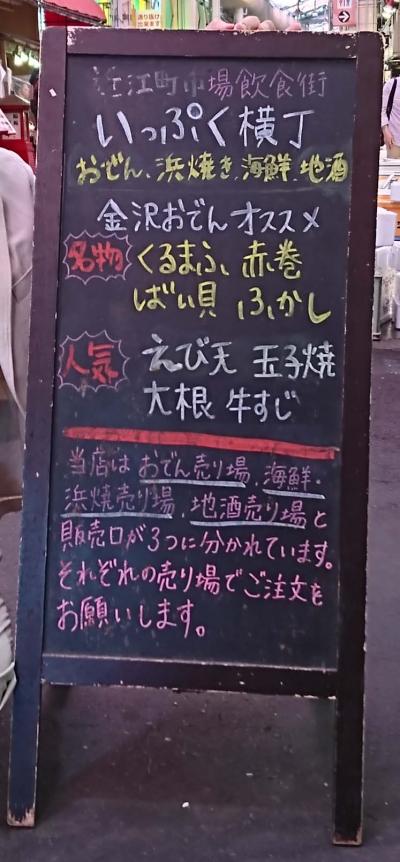 近江町市場飲食街
いっぷく横丁
おでん、浜焼き、海鮮、地酒
金沢おでんオススメ
名物 くるまふ、赤巻
ばい貝 ふかし
人気 えび天 玉子焼
大根 牛すじ
当店は おでん売り場、海鮮・
浜焼売り場、地酒売り場と
販売口が3つに分かれています。
それぞれの売り場でご注文を
お願いします。